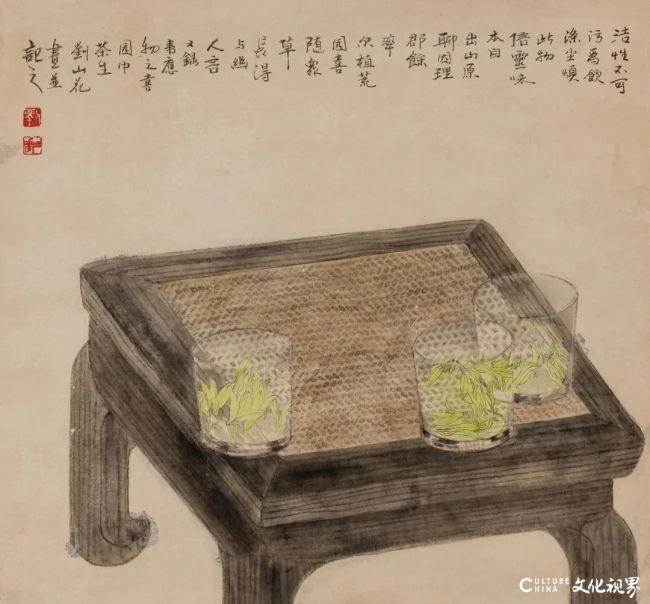 洁性不可
污為飲
滌尘煩
此物
信靈味
本自
出山原
聊因理
郡餘
率
尔植荒
园喜
随衆
草
長得
与幽
人言
又録
韦應
物之喜
园中
茶生
劉山花
畫並
記之
CULTURE
CHINA
文化视界